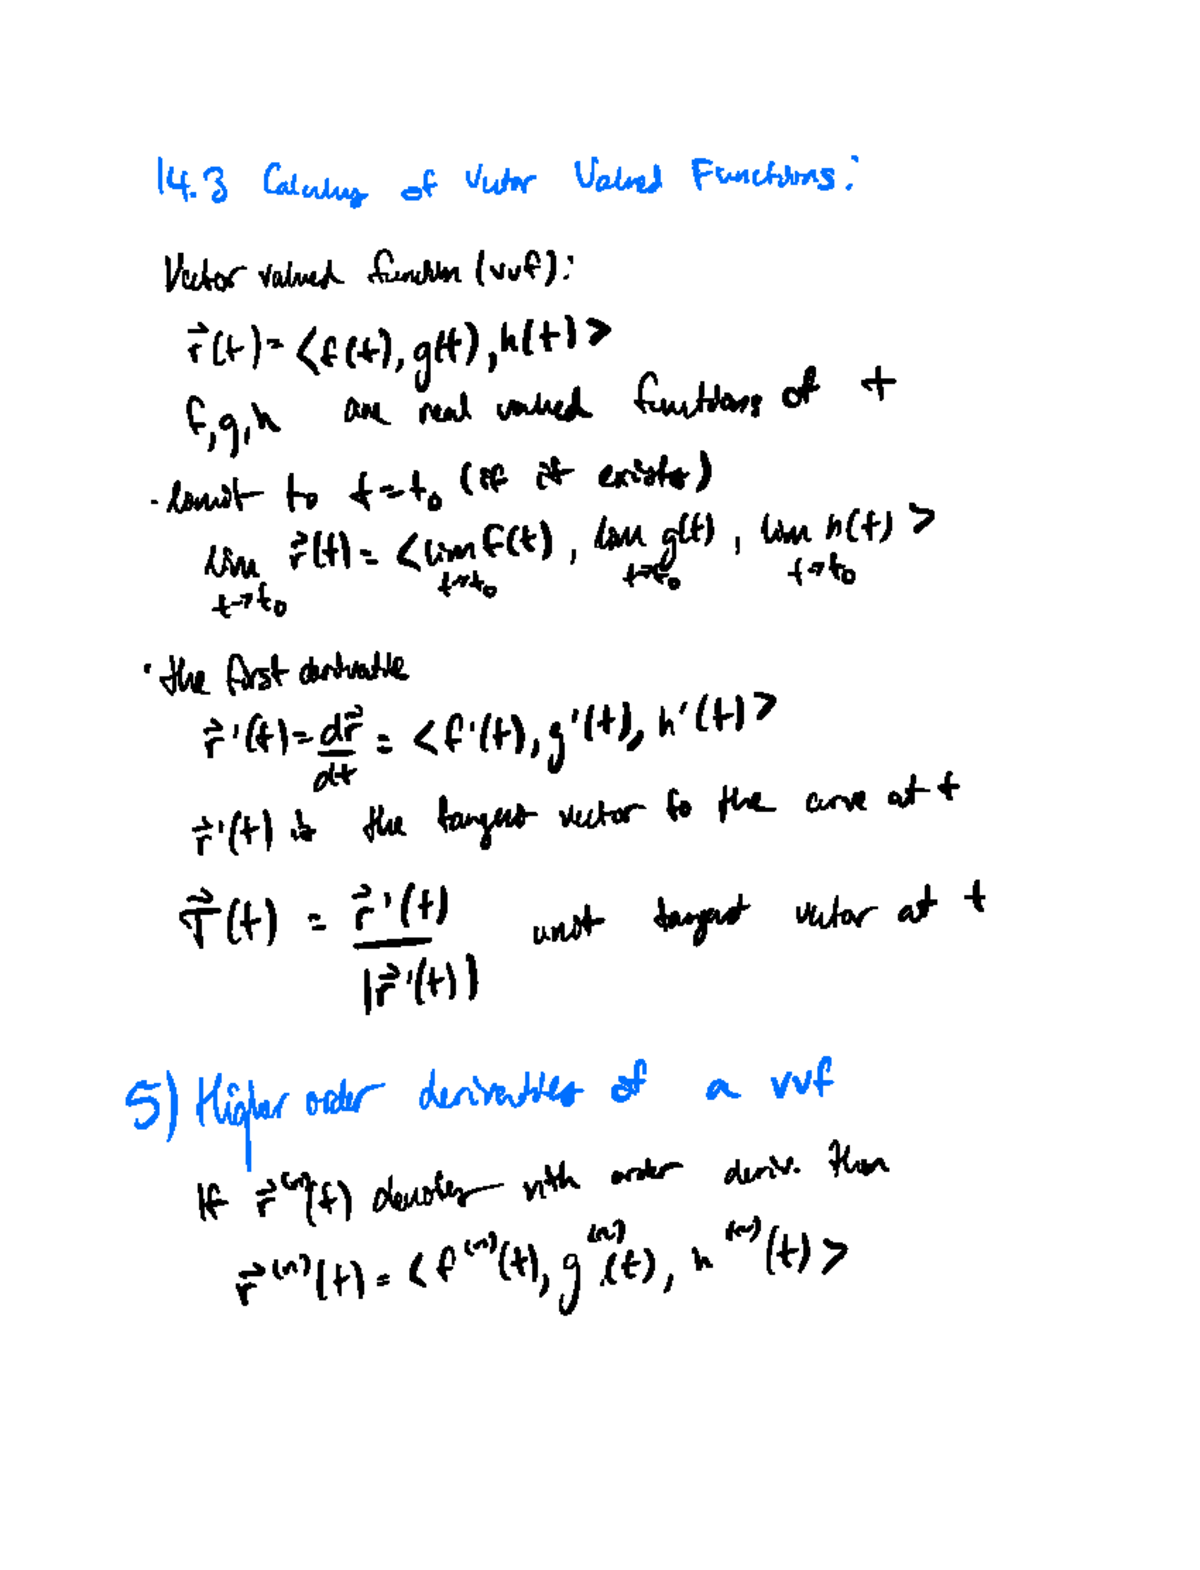 14.3 Calculus of Vector Valued Functions:
Vector valued function (vvf):
r⃗(t) = <f(t), g(t), h(t)>
f, g, h are real valued functions of t
· limit to t = t₀ (if it exists)
lim t→t₀ r⃗(t) = <lim t→t₀ f(t), lim t→t₀ g(t), lim t→t₀ h(t)>
· the first derivative
r⃗'(t) = dr⃗/dt = <f'(t), g'(t), h'(t)>
r⃗'(t) is the tangent vector to the curve at t
T⃗(t) = r⃗'(t)/|r⃗'(t)| unit tangent vector at t
5) Higher order derivatives of a vvf
If r⃗⁽ⁿ⁾(t) denotes nth order deriv. then
r⃗⁽ⁿ⁾(t) = <f⁽ⁿ⁾(t), g⁽ⁿ⁾(t), h⁽ⁿ⁾(t)>